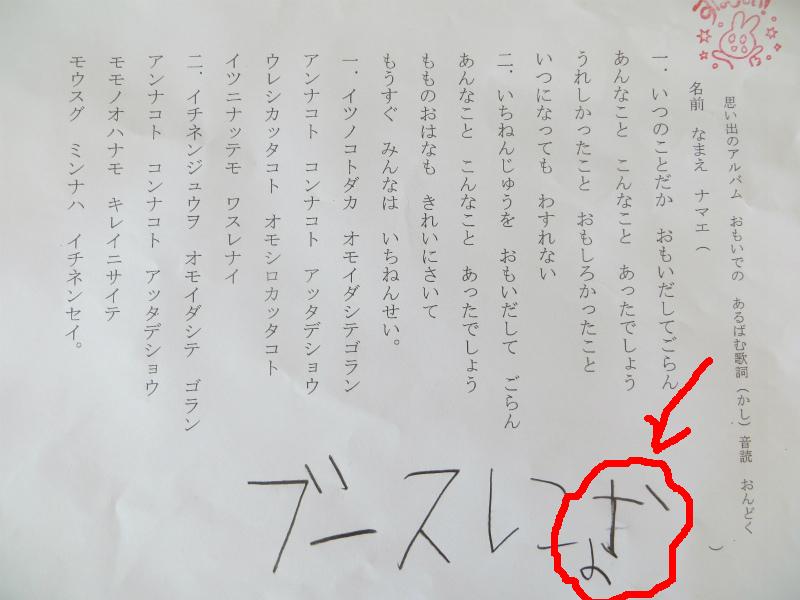 思い出のアルバム　おもいでの　あるばむ歌詞（かし）音読　おんどく
名前　なまえ　ナマエ（　　　　　　　　）
一．いつのことだか　おもいだしてごらん
あんなこと　こんなこと　あったでしょう
うれしかったこと　おもしろかったこと
いつになっても　わすれない
二．いちねんじゅうを　おもいだして　ごらん
あんなこと　こんなこと　あったでしょう
もものおはなも　きれいにさいて
もうすぐ　みんなは　いちねんせい。
一．イツノコトダカ　オモイダシテゴラン
アンナコト　コンナコト　アッタデショウ
ウレシカッタコト　オモシロカッタコト
イツニナッテモ　ワスレナイ
二．イチネンジュウヲ　オモイダシテ　ゴラン
アンナコト　コンナコト　アッタデショウ
モモノオハナモ　キレイニサイテ
モウスグ　ミンナハ　イチネンセイ。
ブースにな